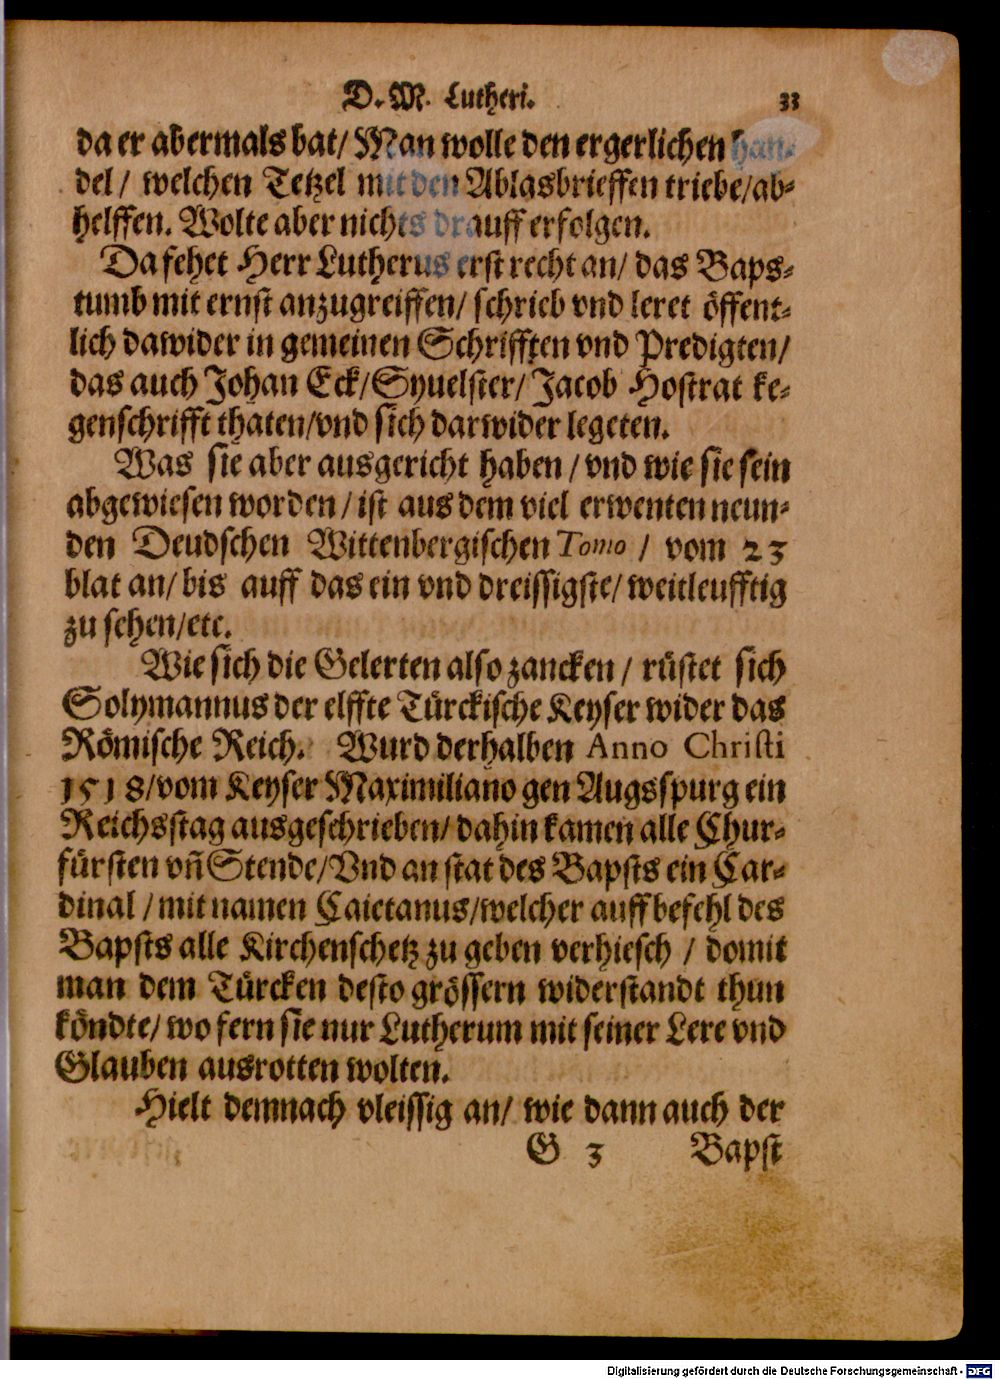 D. M. Lutheri. 33
da er abermals bat/ Man wolle den ergerlichen han-
del/ welchen Tetzel mit den Ablasbrieffen triebe/ab-
helffen. Wolte aber nichts drauff erfolgen.
Da fehet Herr Lutherus erst recht an/ das Baps-
tumb mit ernst anzugreiffen/ schrieb vnd leret öffent-
lich dawider in gemeinen Schrifften vnd Predigten/
das auch Johan Eck/Syuelster/ Jacob Hostrat ke-
genschrifft thaten/vnd sich darwider legeten.
Was sie aber ausgericht haben/ vnd wie sie sein
abgewiesen worden/ ist aus dem viel erwenten neun-
den Deudschen Wittenbergischen Tomo/ vom 23
blat an/ bis auff das ein vnd dreissigste/ weitleufftig
zu sehen/etc.
Wie sich die Gelerten also zancken/ rüstet sich
Solymannus der elffte Türckische Keyser wider das
Römische Reich. Wurd derhalben Anno Christi
1518/vom Keyser Maximiliano gen Augsspurg ein
Reichsstag ausgeschrieben/ dahin kamen alle Chur-
fürsten vn̄ Stende/Vnd an stat des Bapsts ein Car-
dinal/ mit namen Caietanus/welcher auff befehl des
Bapsts alle Kirchenschetz zu geben verhiesch/ domit
man dem Türcken desto grössern widerstandt thun
köndte/ wo fern sie nur Lutherum mit seiner Lere vnd
Glauben ausrotten wolten.
Hielt demnach vleissig an/ wie dann auch der
G 3 Bapst
Digitalisierung gefördert durch die Deutsche Forschungsgemeinschaft - DFG